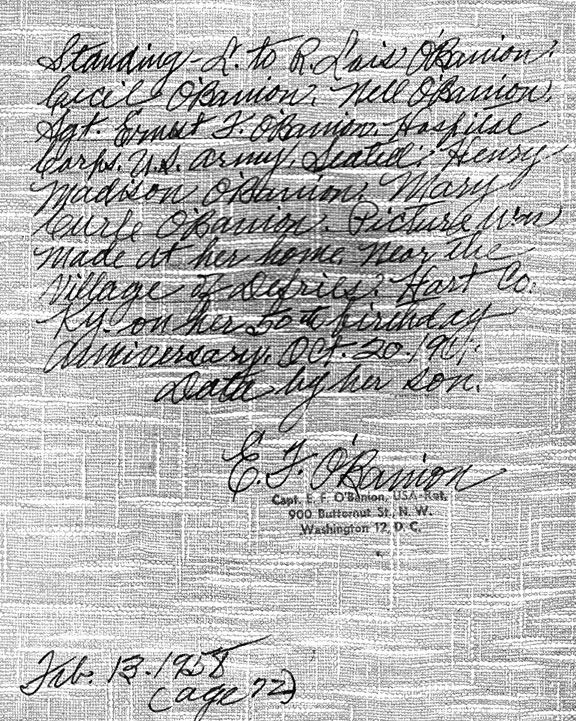 Standing - L. to R. Lois O'Banion;
Cecil O'Banion; Nell O'Banion;
Sgt. Ernest F. O'Banion, Hospital
Corps, U.S. Army, Seated: Henry
Madison O'Banion; Mary
Curle O'Banion. Picture was
made at her home near the
Village of Defries; Hart Co.
Ky. on her 50th birthday
anniversary, Oct. 20. 1911.
Data by her son.
E. F. O'Banion
Capt. E. F. O'Banion, USA-Ret.
900 Butternut St., N. W.
Washington 12, D. C.
Feb. 13. 1958
(age 72)